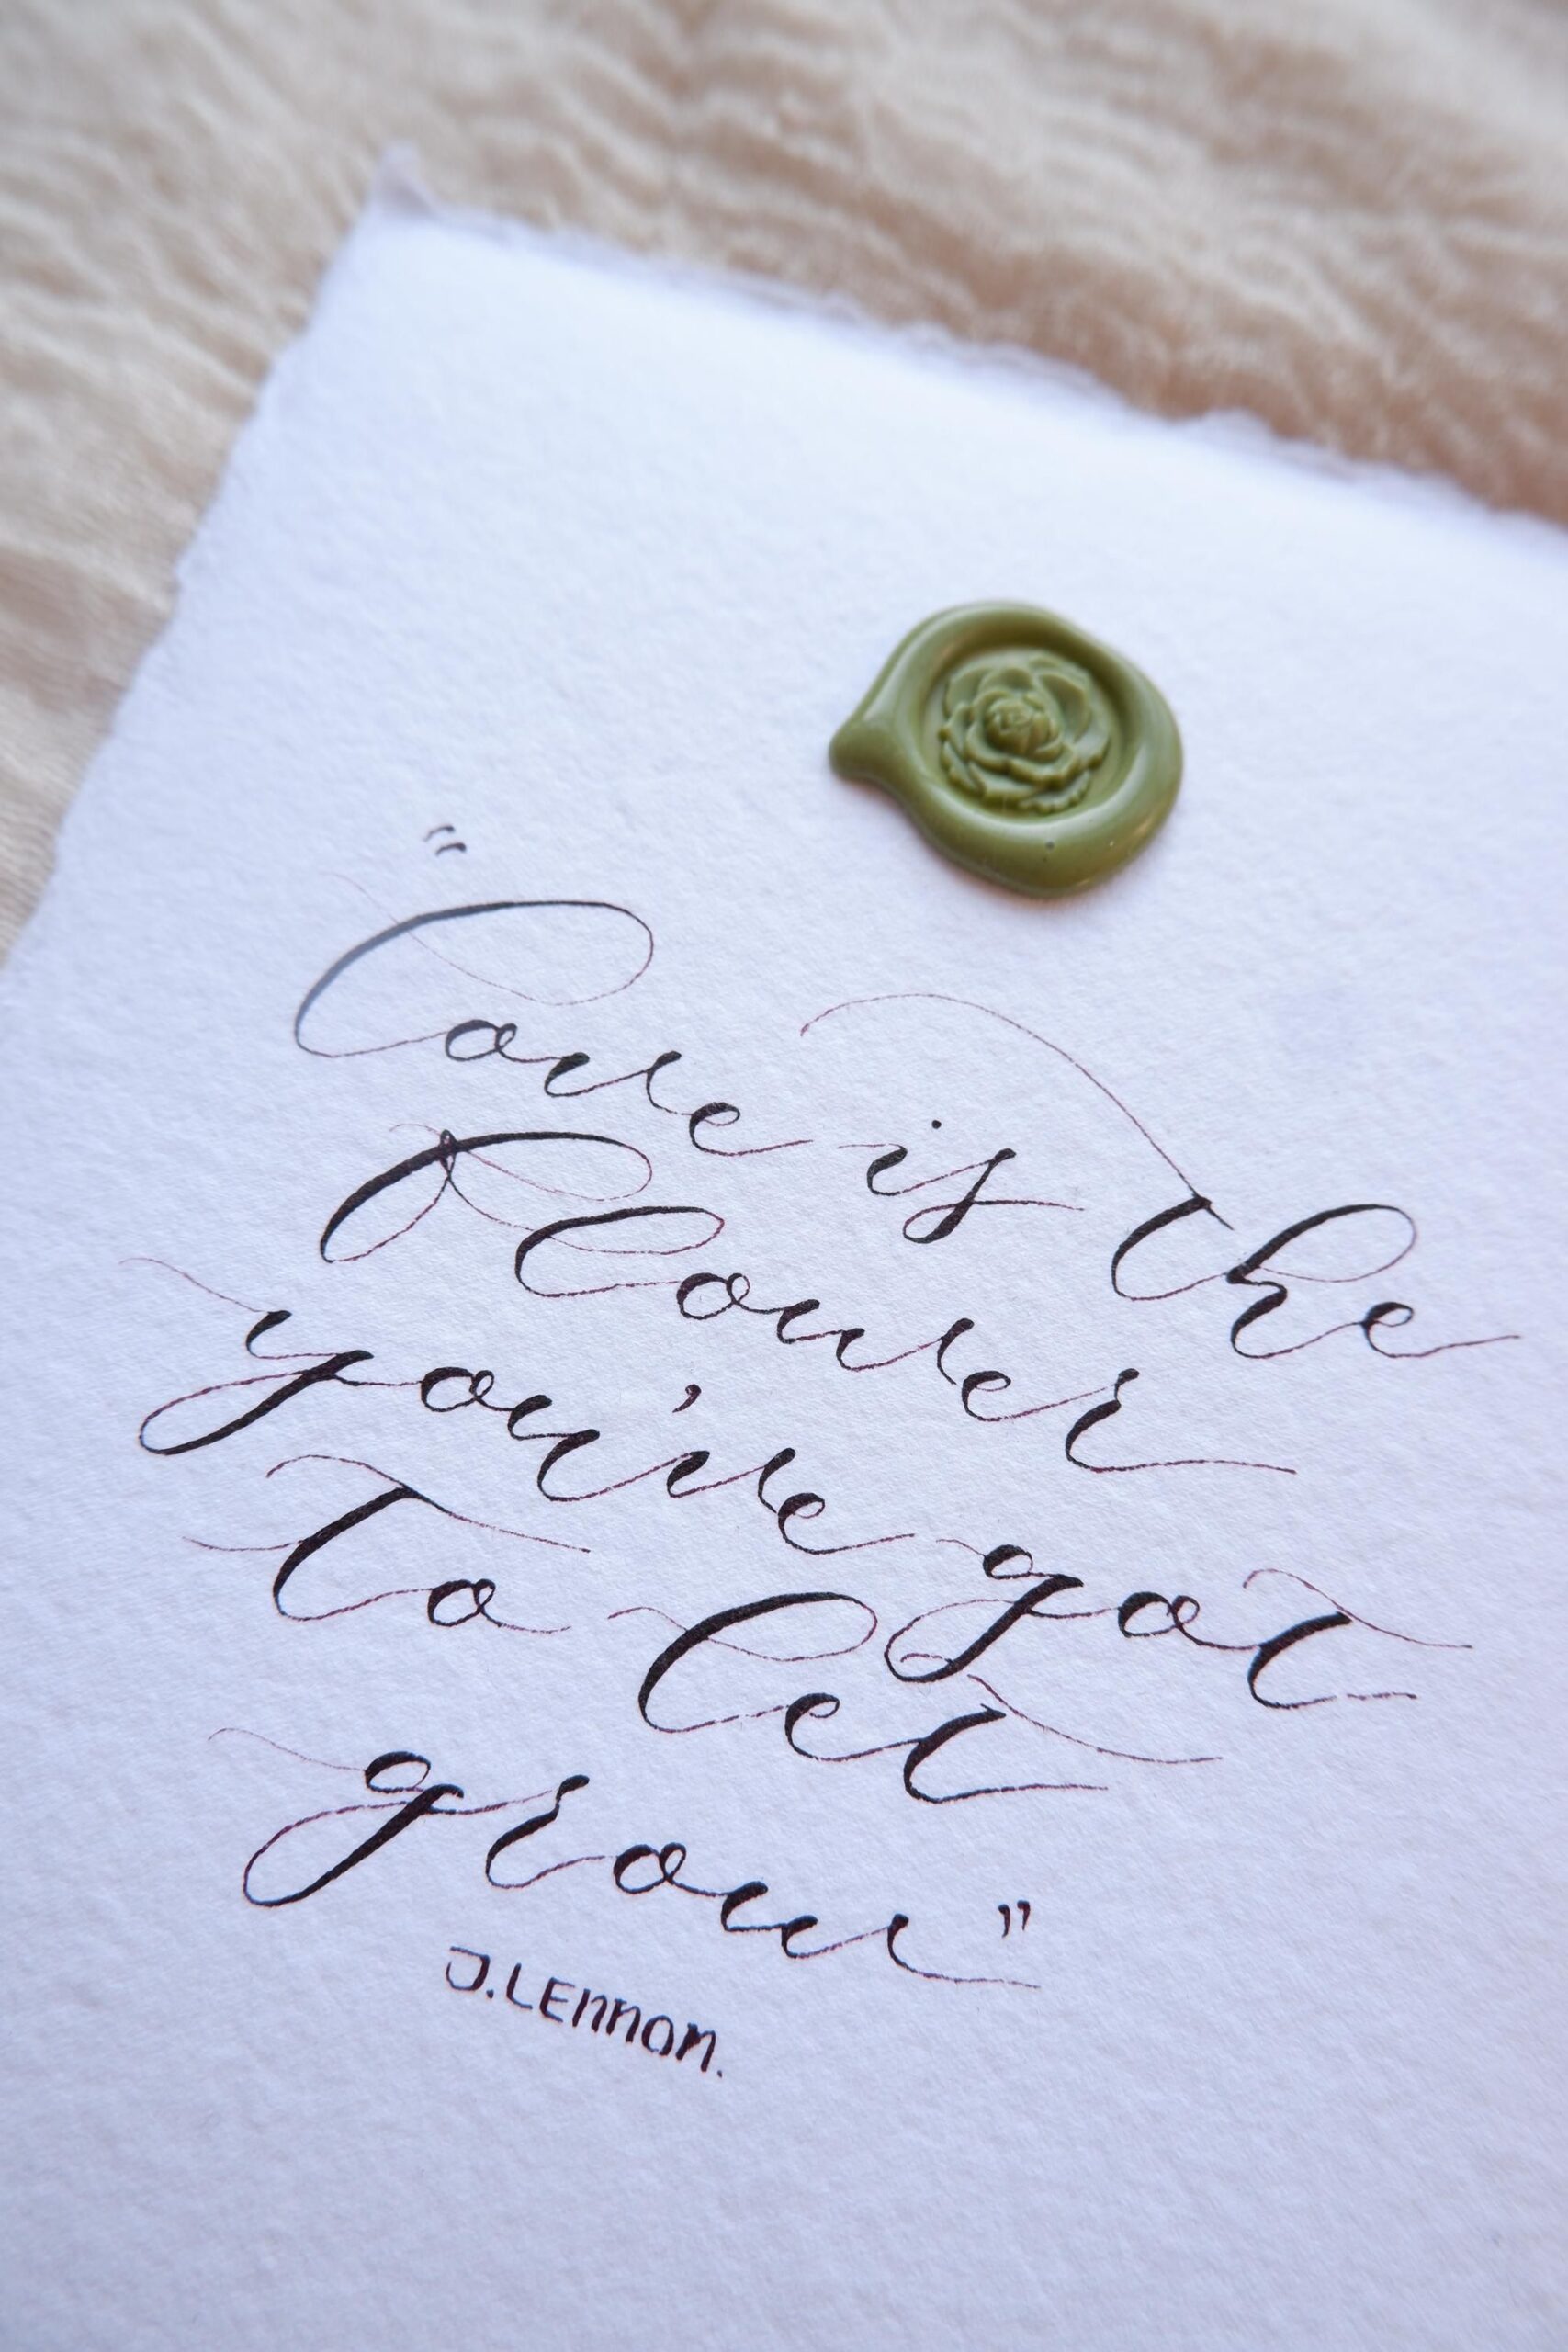 "Love is the
flower
you're got
to let
grow"
J.LEnnon.